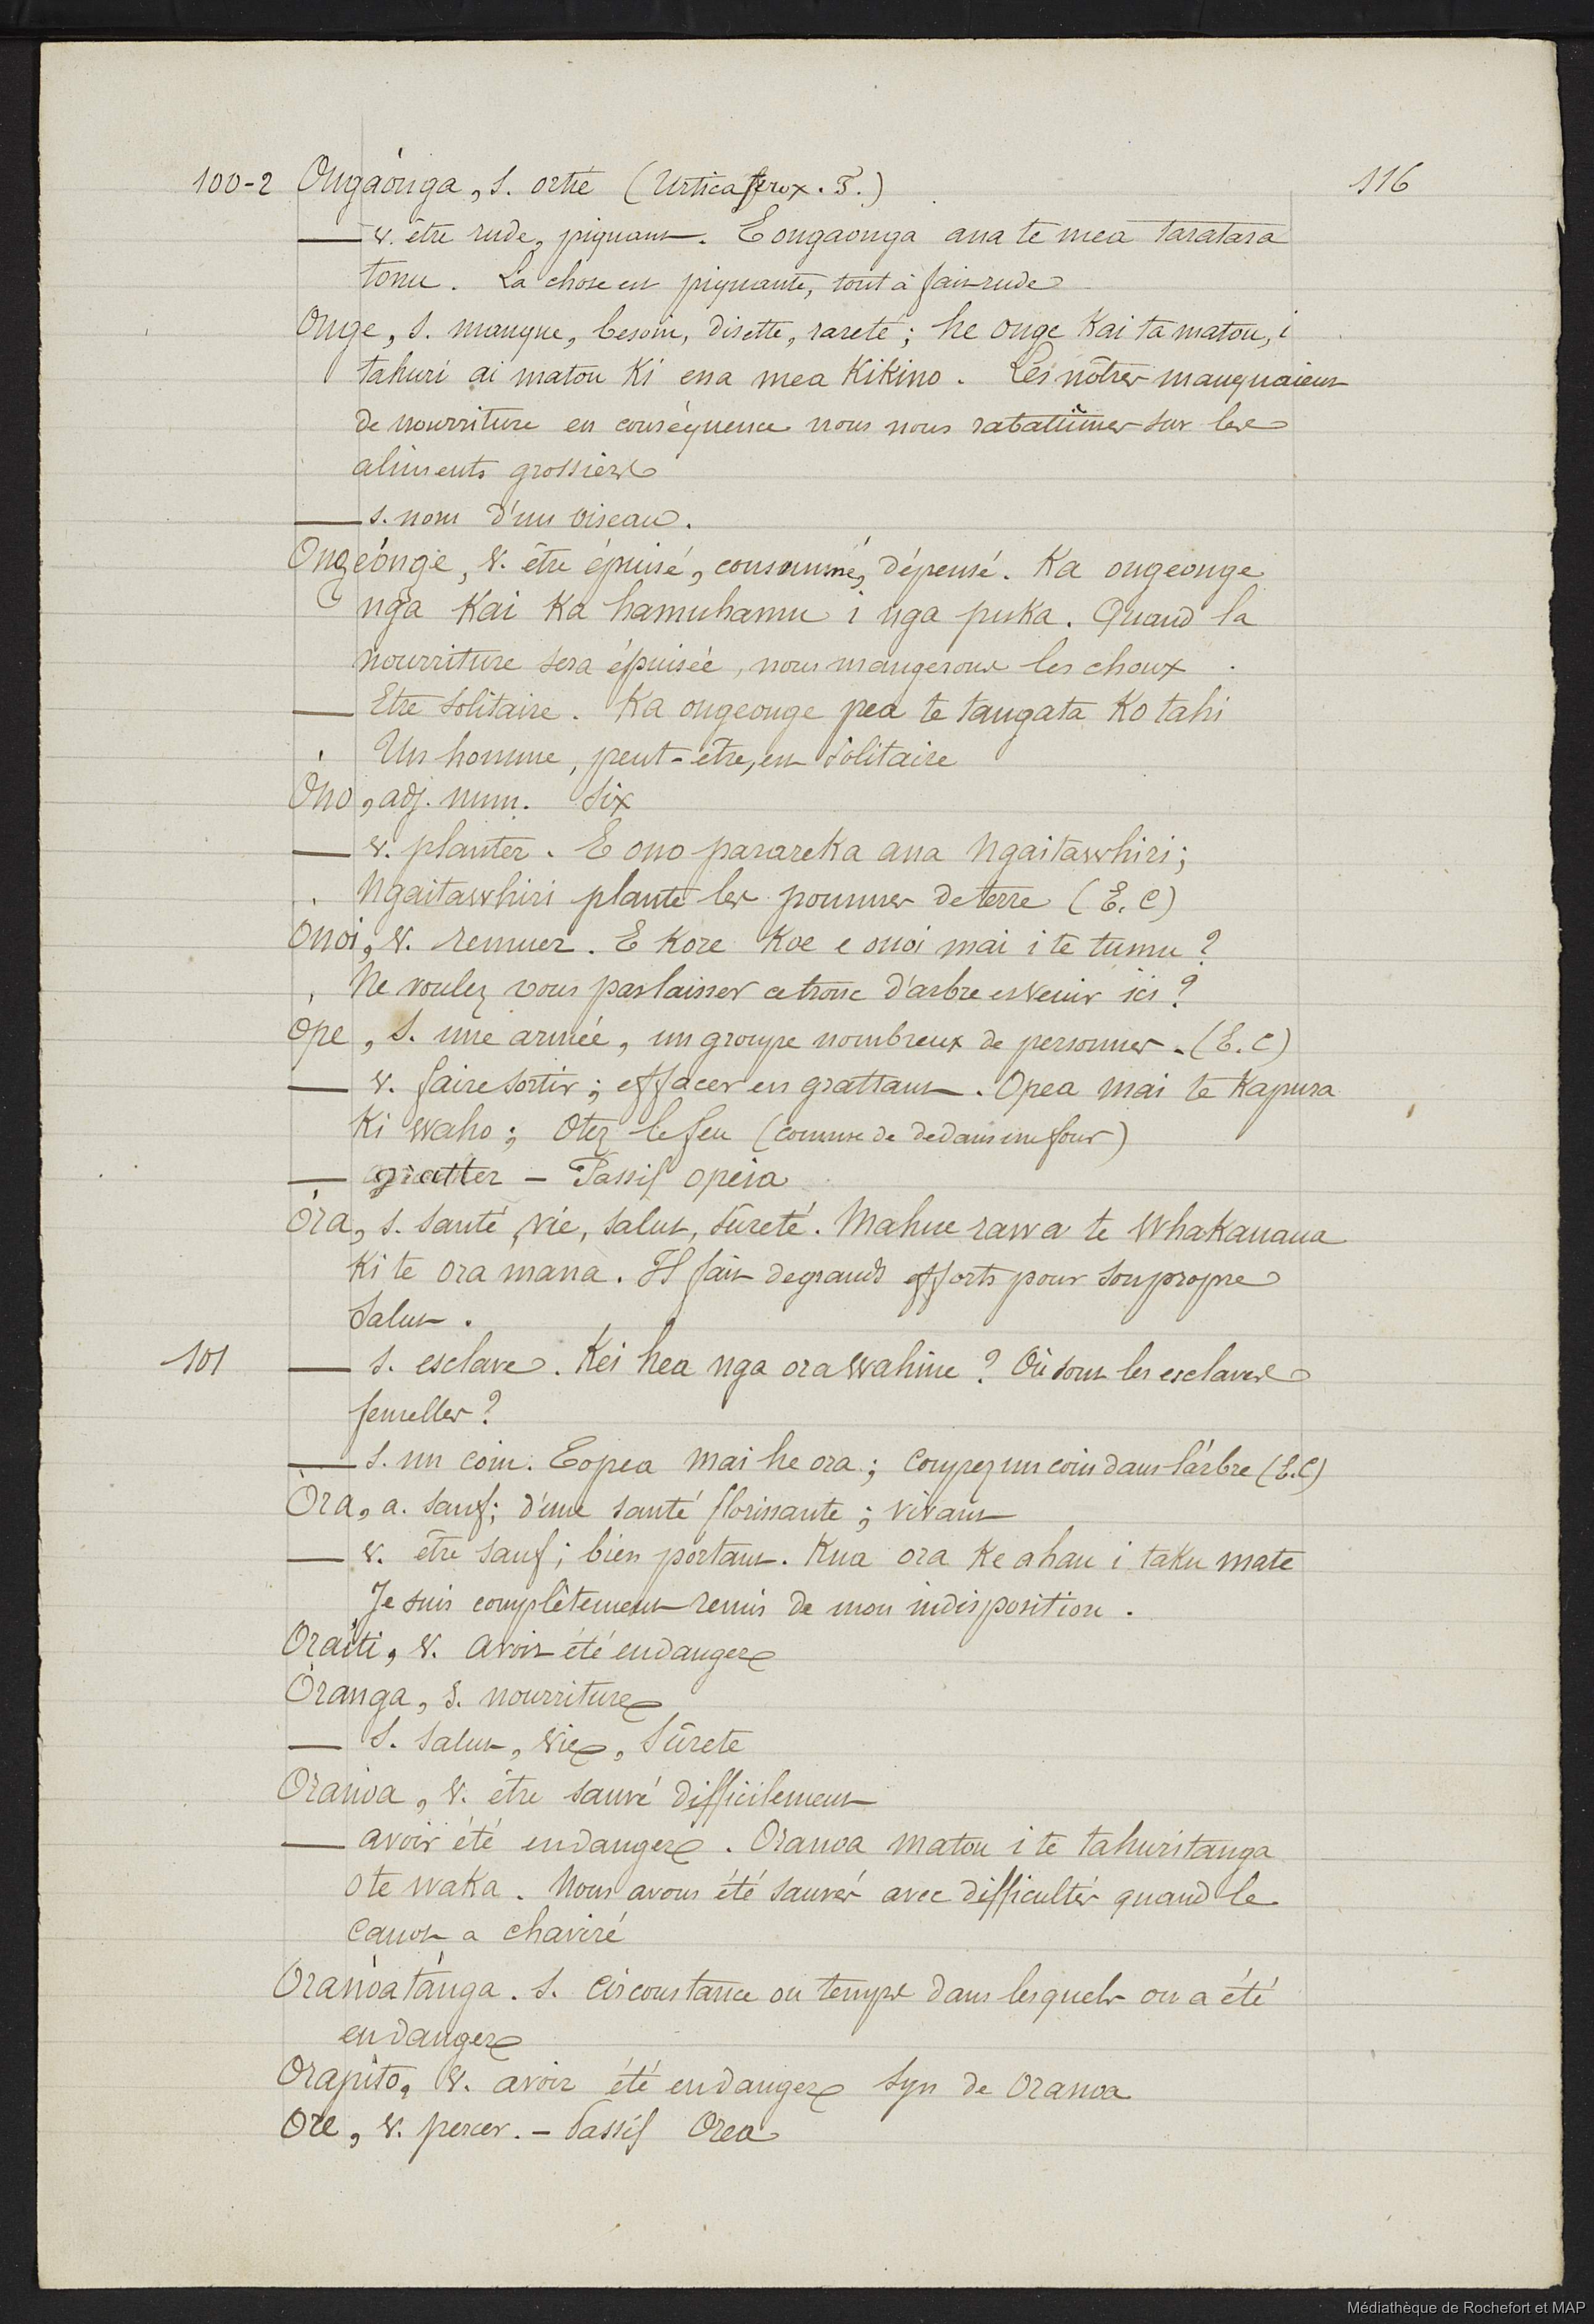 100-2 Ongaónga, s. ortie (Urtica ferox. F.) 116
— v. être rude, piquant. E ongaonga ana te mea taratara
tonu. La chose est piquante, tout à fait rude
Onge, s. manque, besoin, disette, rareté; he onge Kai ta matou, i
tahuri ai matou Ki ena mea Kikino. Les nôtres manquaient
de nourriture en conséquence nous nous rabattîmes sur les
aliments grossiers
— s. nom d'un oiseau.
Ongeónge, v. être épuisé, consommé, dépensé. Ka ongeonge
nga Kai Ka hamuhamu i nga puka. Quand la
nourriture sera épuisée, nous mangerons les choux
— Etre solitaire. Ka ongeonge pea te tangata Ko tahi
Un homme, peut-être, est solitaire
Óno, adj. num. Six
— v. planter. E ono parareka ana Ngaitawhiri;
Ngaitawhiri plante les pommes de terre (E. C)
Onoi, v. remuer. E Kore Koe e onoi mai i te tumu?
Ne voulez vous pas laisser ce tronc d'arbre venir ici?
Ópe, s. une armée, un groupe nombreux de personnes. (E. C)
— v. faire sortir; effacer en grattant. Opea mai te Kapura
Ki waho; Otez le feu (comme de dedans un four)
— gratter – Passif opeia
Óra, s. santé, vie, salut, sûreté. Mahue rawa te Whakauaua
Ki te ora mana. Il fait de grands efforts pour son propre
Salut.
101 — s. esclave. Kei hea nga ora wahine? Où sont les esclaves
femelles?
— s. un coin. Eopea mai he ora; Coupez un coin dans l'arbre (E.C)
Óra, a. sauf; d'une santé florissante; vivant
— v. être sauf; bien portant. Kua ora Ke ahau i taku mate
Je suis complètement remis de mon indisposition.
Oraíti, v. avoir été en danger
Óranga, s. nourriture
— s. salut, vie, Sûrete
Oranóa, v. être sauvé difficilement
— avoir été en danger. Oranoa matou i te tahuritanga
o te waka. Nous avons été sauvés avec difficultés quand le
canot a chaviré
Oranóatánga. s. Circonstance ou temps dans lesquels on a été
en danger
Orapíto, v. avoir été en danger Syn de Oranoa
Ore, v. percer. – Passif Orea
Médiathèque de Rochefort et MAP